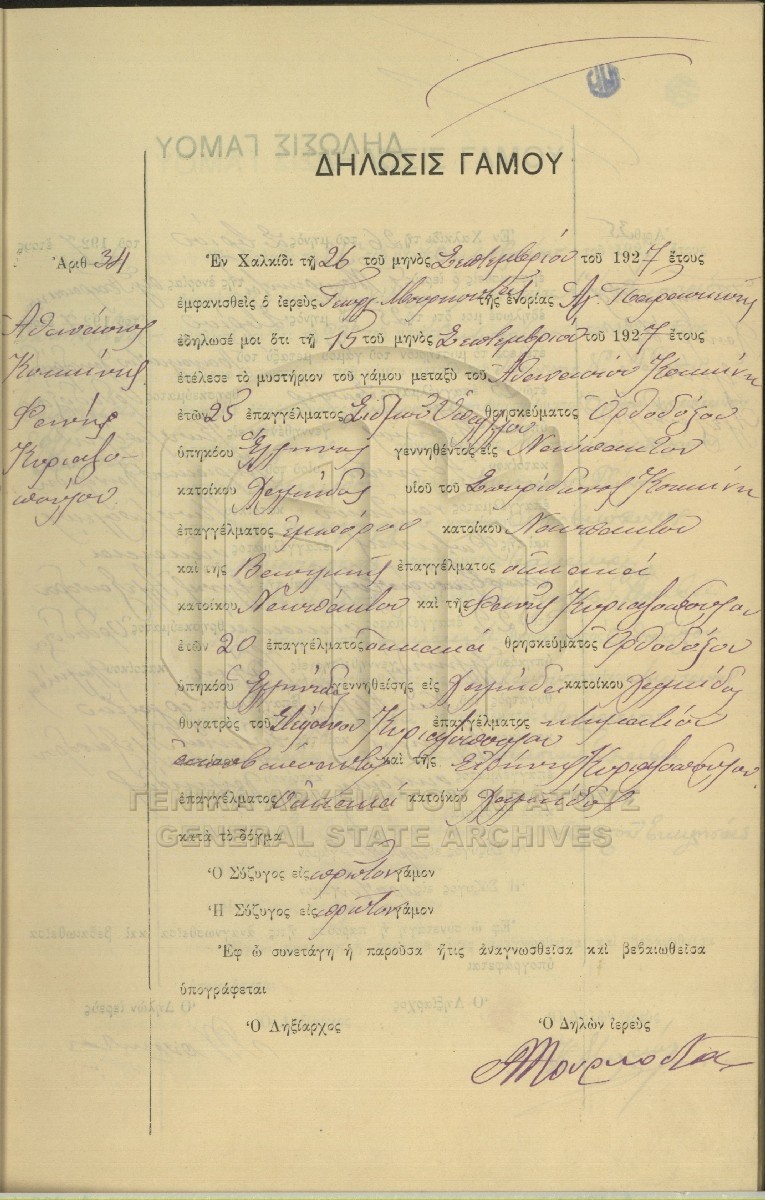 ΔΗΛΩΣΙΣ ΓΑΜΟΥ
Ἀριθ. 34
Ἀθανάσιος
Κοκκίνης
Φανής
Κυριαζο-
πούλου
Ἐν Χαλκίδι τῇ 26 τοῦ μηνὸς Σεπτεμβρίου τοῦ 1927 ἔτους
ἐμφανισθεὶς ὁ ἱερεὺς Γεωργ. τῆς ἐνορίας Ἁγ. Παρασκευῆς
ἐδήλωσέ μοι ὅτι τῇ 15 τοῦ μηνὸς Σεπτεμβρίου τοῦ 1927 ἔτους
ἐτέλεσε τὸ μυστήριον τοῦ γάμου μεταξὺ τοῦ Ἀθανασίου Κοκκίνη
ἐτῶν 25 ἐπαγγέλματος θρησκεύματος Ὀρθοδόξου
ὑπηκόου Ἕλληνος γεννηθέντος εἰς Ναύπακτον
κατοίκου Χαλκίδος υἱοῦ τοῦ Σπυρίδωνος Κοκκίνη
ἐπαγγέλματος ἐμπόρου κατοίκου Ναυπάκτου
καὶ τῆς Βασιλικῆς ἐπαγγέλματος οἰκιακά
κατοίκου Ναυπάκτου καὶ τῆς Φανῆς Κυριαζοπούλου
ἐτῶν 20 ἐπαγγέλματος οἰκιακά θρησκεύματος Ὀρθοδόξου
ὑπηκόου Ἑλληνίδος γεννηθείσης εἰς Χαλκίδα κατοίκου Χαλκίδος
θυγατρὸς τοῦ Κυριαζοπούλου ἐπαγγέλματος κτηματίου
καὶ τῆς Εἰρήνης Κυριαζοπούλου
ἐπαγγέλματος Οἰκιακά κατοίκου Χαλκίδος
ΓΕΝΙΚΑ ΑΡΧΕΙΑ ΤΟΥ ΚΡΑΤΟΥΣ
GENERAL STATE ARCHIVES
κατὰ τὸ δόγμα
Ὁ Σύζυγος εἰς πρῶτον γάμον
Ἡ Σύζυγος εἰς πρῶτον γάμον
Ἐφ ᾧ συνετάγη ἡ παροῦσα ἥτις ἀναγνωσθεῖσα καὶ βεβαιωθεῖσα
ὑπογράφεται
Ὁ Ληξίαρχος Ὁ Δηλῶν ἱερεὺς